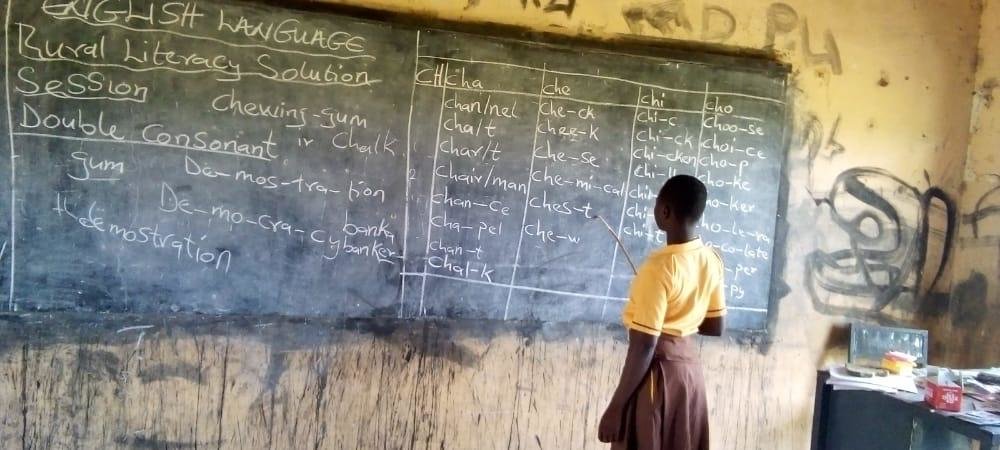 ENGLISH LANGUAGE
Rural Literacy Solution
Session
Chewing-gum
Double Consonant ir Chalk
gum De-mos-tra-tion
De-mo-cra-cy bank
thdemostration banker
CH Cha che chi cho
chan/nel che-ck chi-c choo-se
cha/t chee-k chi-ck choi-ce
char/t che-se chi-cken cho-p
chair/man che-mi-cal cho-ke
chan-ce ches-t
cha-pel che-w chi-t
chan-t
chal-k